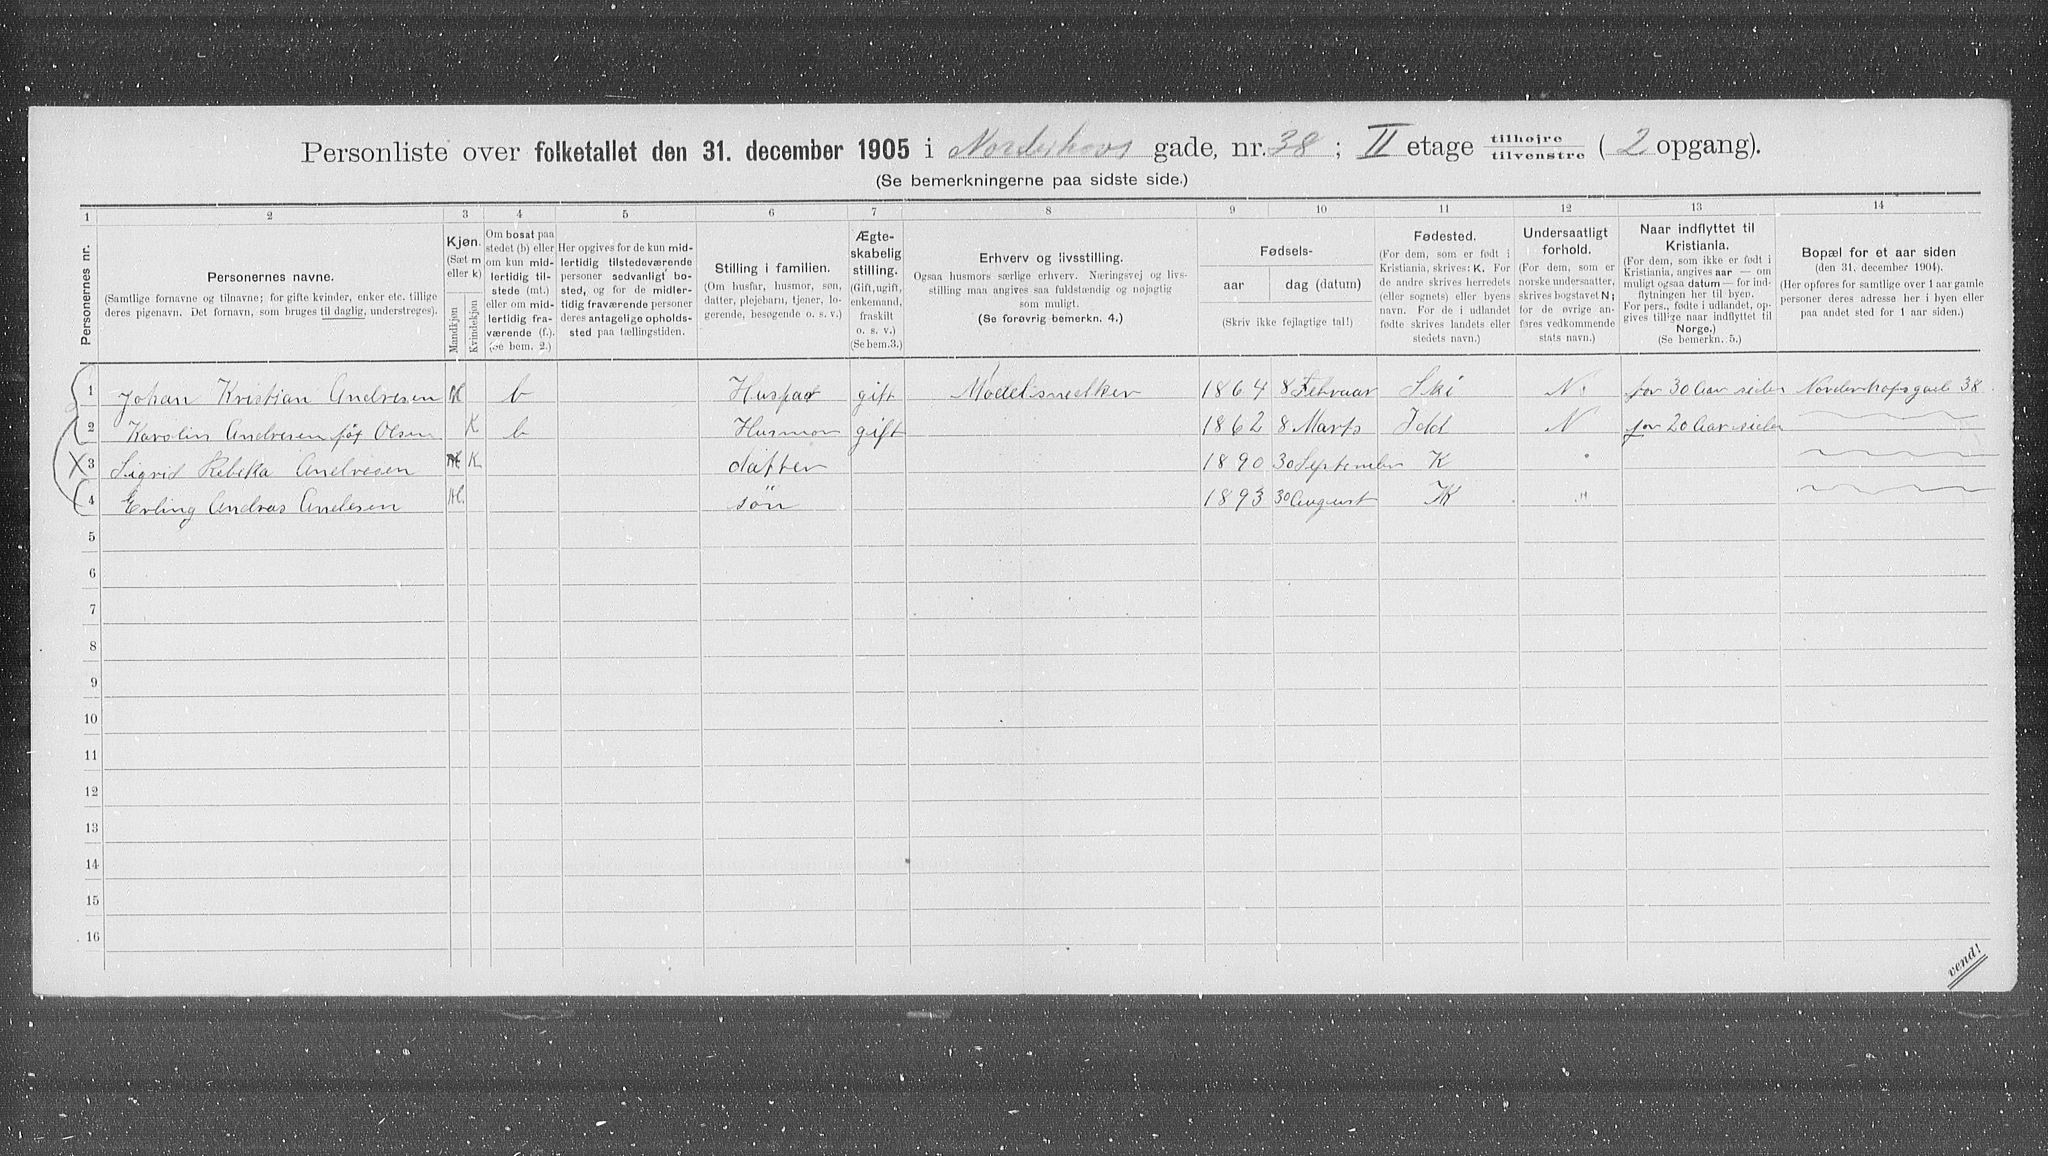 Personliste over folketallet den 31. december 1905 i Norderhovs gade, nr. 38 ; II etage tilhøjre tilvenstre ( 2 opgang).
(Se bemerkningerne paa sidste side.)
1 2 3 4 5 6 7 8 9 10 11 12 13 14
Personernes nr.
Personernes navne.
(Samtlige fornavne og tilnavne; for gifte kvinder, enker etc. tillige
deres pigenavn. Det fornavn, som bruges til daglig, understreges).
Kjøn.
(Sæt m
eller k)
Mandkjøn
Kvindekjøn
Om bosat paa
stedet (b) eller
om kun mid-
lertidig til-
stede (mt.)
eller om mid-
lertidig fra-
værende (f.).
(Se bem. 2.)
Her opgives for de kun mid-
lertidig tilstedeværende
personer sedvanligt bo-
sted, og for de midler-
tidig fraværende personer
deres antagelige opholds-
sted paa tællingstiden.
Stilling i familien.
(Om husfar, husmor, søn,
datter, plejebarn, tjener, lo-
gerende, besøgende o. s. v.)
Ægte-
skabelig
stilling.
(Gift, ugift,
enkemand,
fraskilt
o. s. v.)
(Se bem.3.)
Erhverv og livsstilling.
Ogsaa husmors særlige erhverv. Næringsvej og livs-
stilling maa angives saa fuldstændig og nøjagtig
som muligt.
(Se forøvrig bemerkn. 4.)
Fødsels-
aar dag (datum)
(Skriv ikke fejlagtige tal!)
Fødested.
(For dem, som er født i
Kristiania, skrives: K. For
de andre skrives herredets
(eller sognets) eller byens
navn. For de i udlandet
fødte skrives landets eller
stedets navn.)
Undersaatligt
forhold.
(For dem, som er
norske undersaatter,
skrives bogstavet N;
for de øvrige an-
føres vedkommende
stats navn.)
Naar indflyttet til
Kristiania.
(For dem, som ikke er født i
Kristiania, angives aar — om
muligt ogsaa datum — for ind-
flytningen her til byen.
For pers., født i udlandet, op-
gives tillige naar indflyttet til
Norge.)
(Se bemerkn. 5.)
Bopæl for et aar siden
(den 31. december 1904).
(Her opføres for samtlige over 1 aar gamle
personer deres adresse her i byen eller
paa andet sted for 1 aar siden.)
1 Johan Kristian Andresen M b Huspar gift Modelsnedker 1864 8 Februar Ski N. for 30 Aar siden Norderhofsgade 38
2 Karolin Andresen føt Olsen K b Husmor gift 1862 8 Marts Idd N for 20 Aar siden
X 3 Sigrid Rebeka Andresen K datter 1890 30 September K "
4 Erling Andras Andesen M. søn 1893 30 August K "
5
6
7
8
9
10
11
12
13
14
15
16
vend!